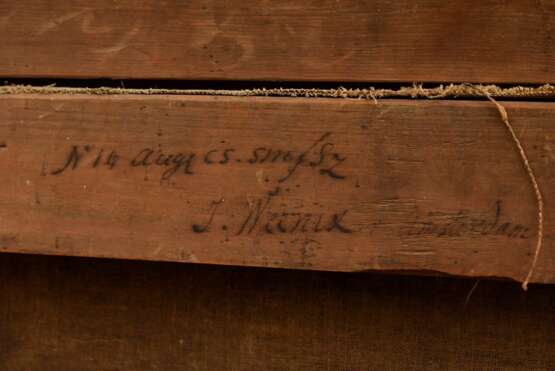 N 14 Augt cs. smf Sz
J. Weenix Amsterdam